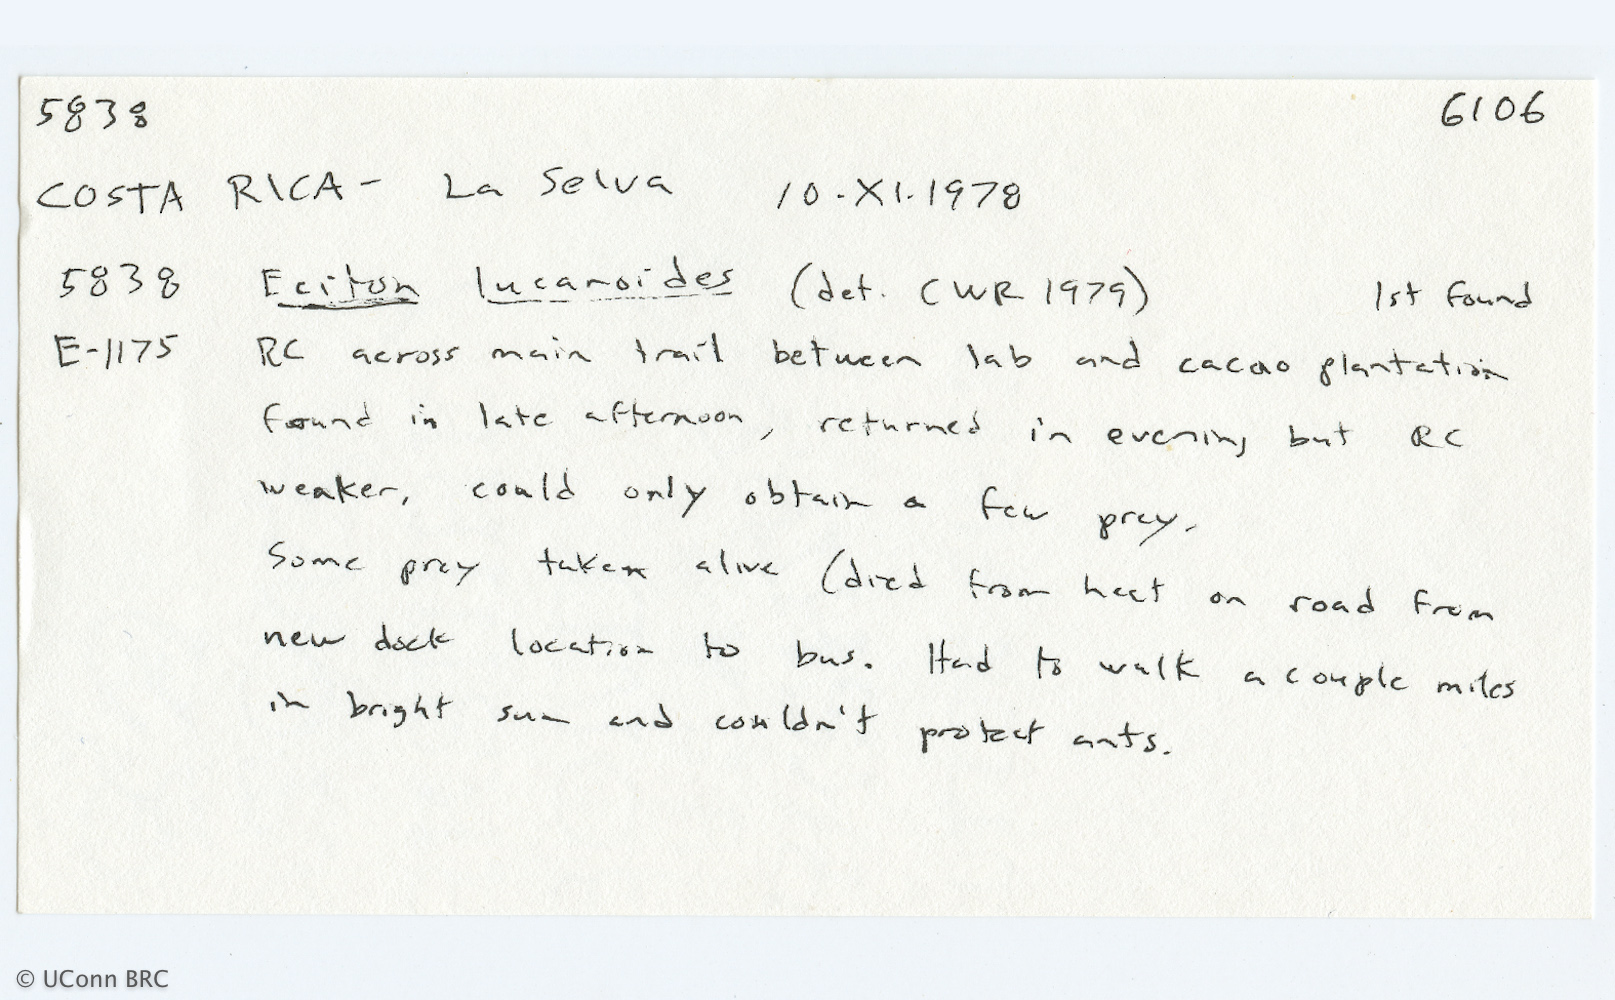 5838 6106
COSTA RICA - La Selva 10.XI.1978
5838 Eciton lucanoides (det. CWR 1979) 1st found
E-1175 RC across main trail between lab and cacao plantation
found in late afternoon, returned in evening but RC
weaker, could only obtain a few prey.
Some prey taken alive (died from heat on road from
new dock location to bus. Had to walk a couple miles
in bright sun and couldn't protect ants.
© UConn BRC